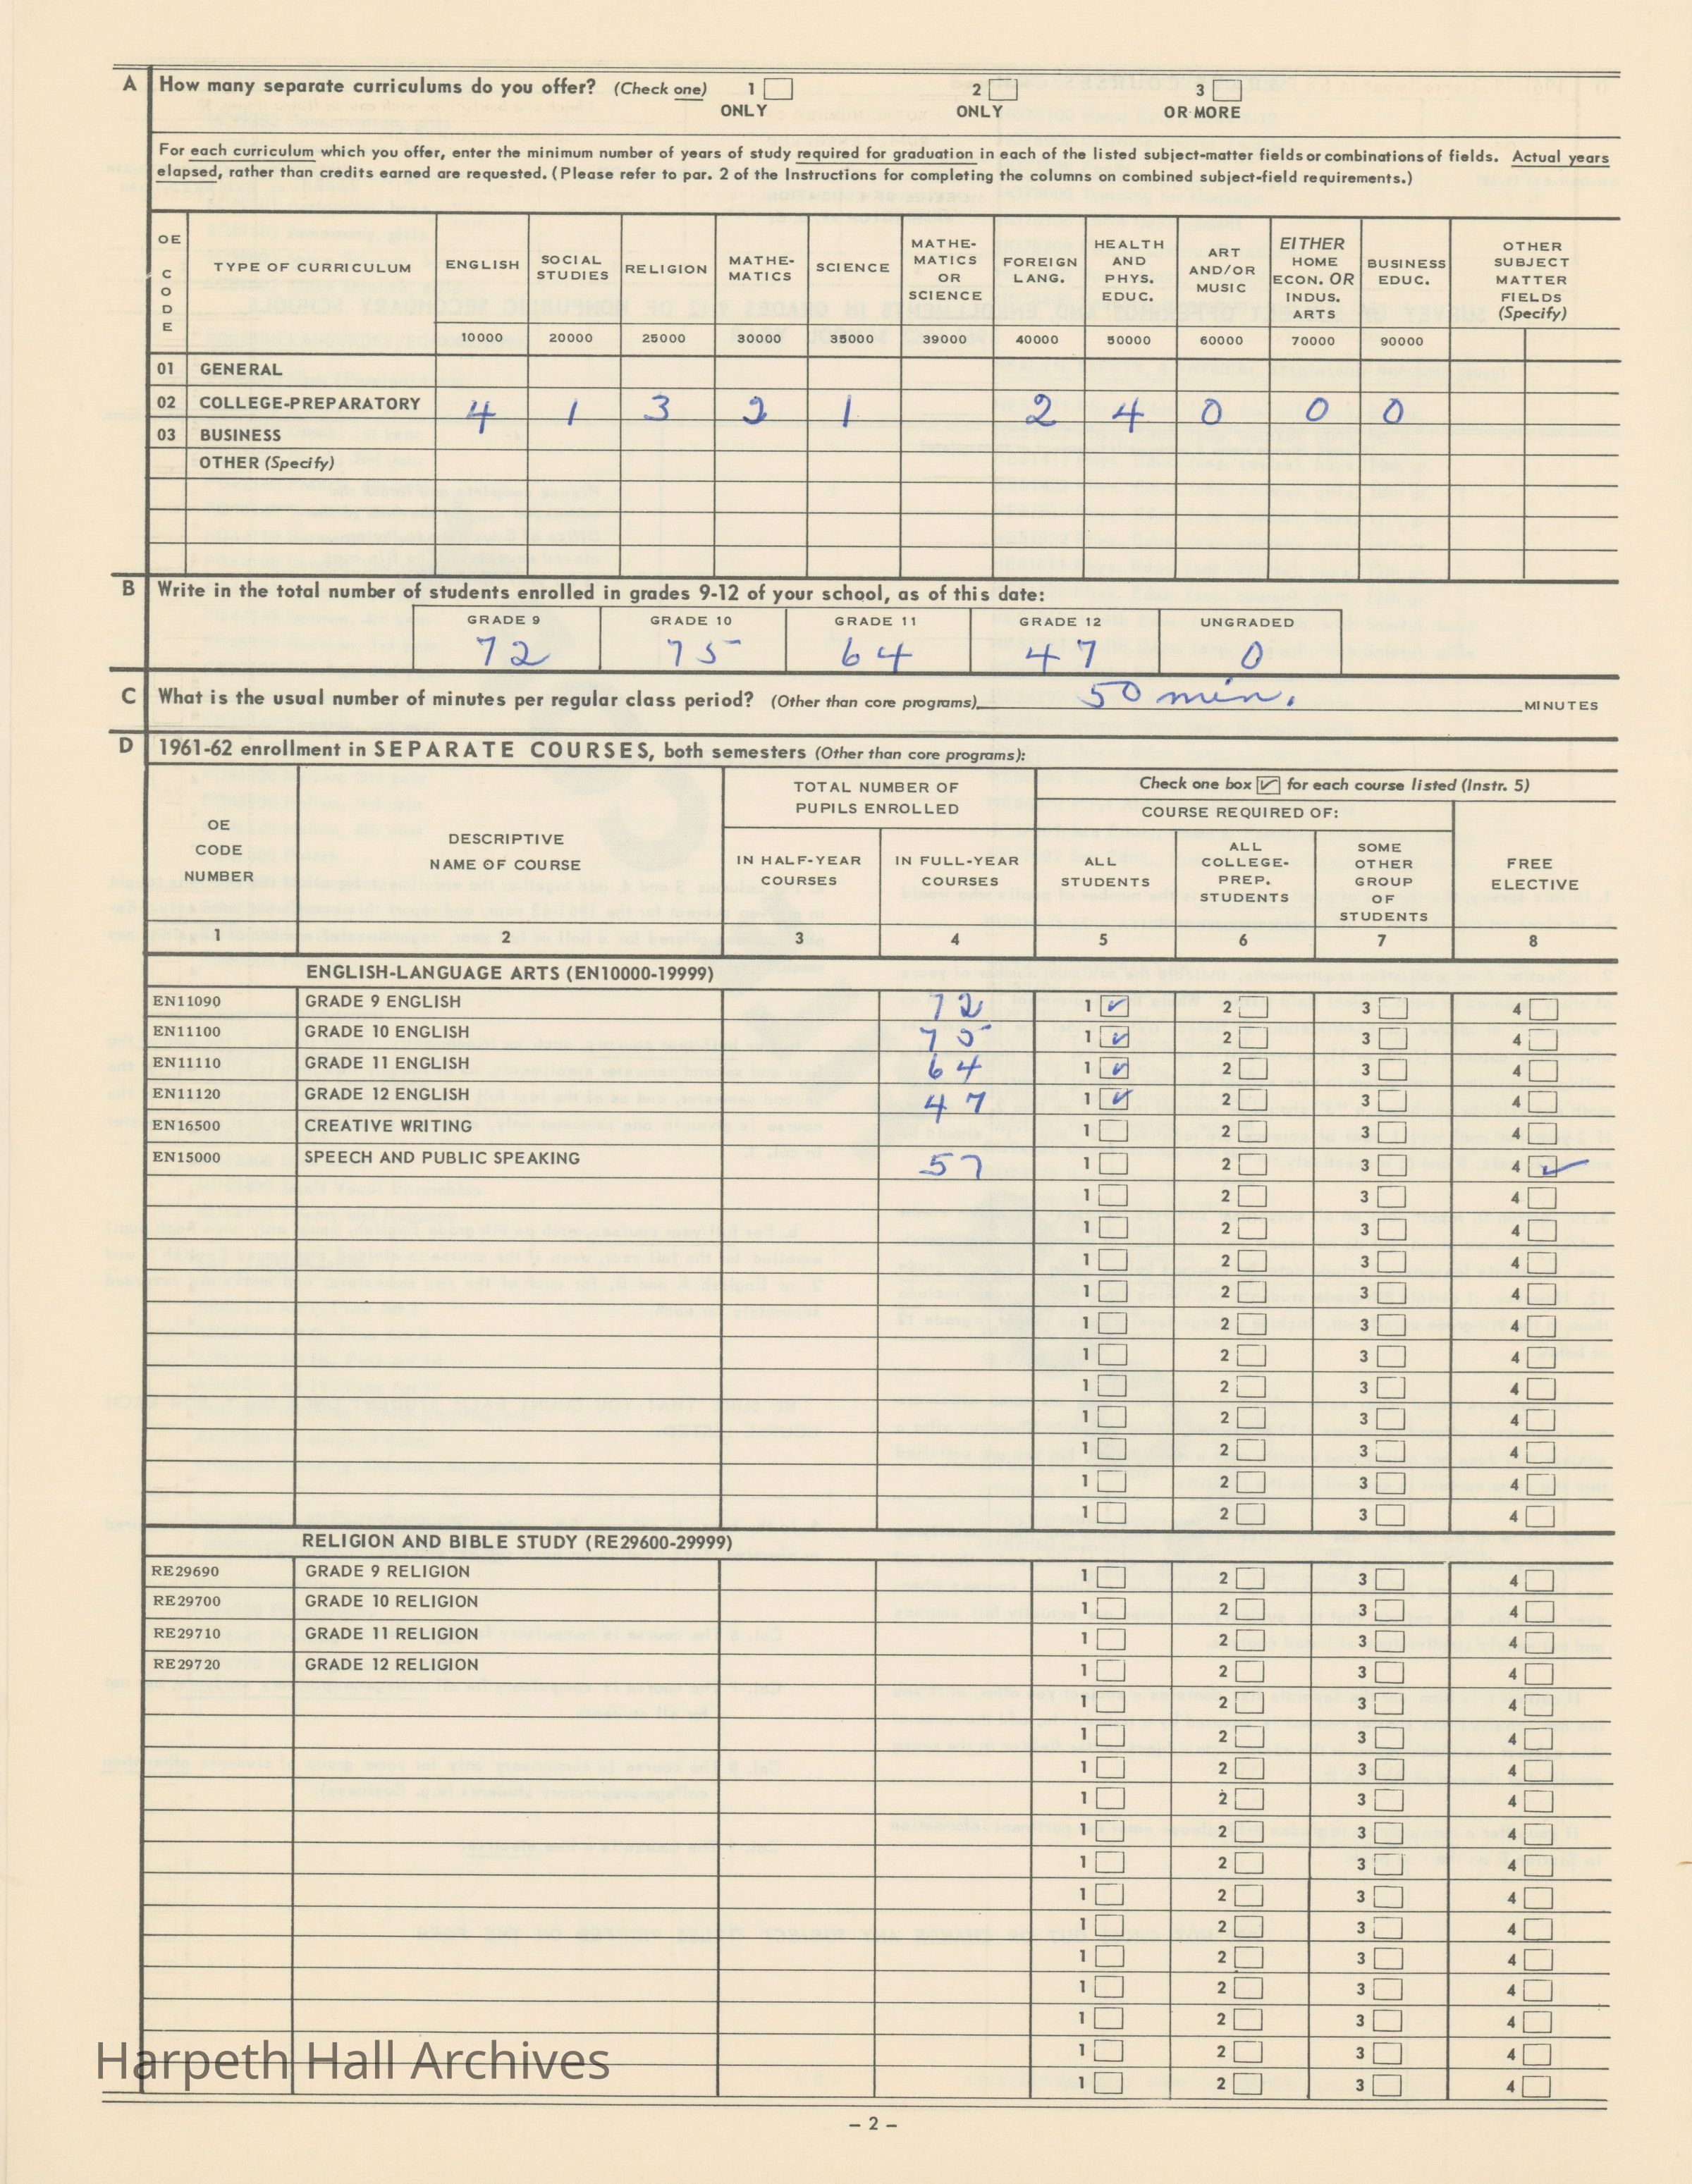 A How many separate curriculums do you offer? (Check one) 1 ONLY 2 ONLY 3 OR MORE
For each curriculum which you offer, enter the minimum number of years of study required for graduation in each of the listed subject-matter fields or combinations of fields. Actual years
elapsed, rather than credits earned are requested. (Please refer to par. 2 of the Instructions for completing the columns on combined subject-field requirements.)
OE CODE
TYPE OF CURRICULUM
ENGLISH 10000
SOCIAL STUDIES 20000
RELIGION 25000
MATHE-MATICS 30000
SCIENCE 35000
MATHE-MATICS OR SCIENCE 39000
FOREIGN LANG. 40000
HEALTH AND PHYS. EDUC. 50000
ART AND/OR MUSIC 60000
EITHER HOME ECON. OR INDUS. ARTS 70000
BUSINESS EDUC. 90000
OTHER SUBJECT MATTER FIELDS (Specify)
01 GENERAL
02 COLLEGE-PREPARATORY 4 1 3 2 1 2 4 0 0 0
03 BUSINESS
OTHER (Specify)
B Write in the total number of students enrolled in grades 9-12 of your school, as of this date:
GRADE 9 GRADE 10 GRADE 11 GRADE 12 UNGRADED
72 75 64 47 0
C What is the usual number of minutes per regular class period? (Other than core programs) 50 min. MINUTES
D 1961-62 enrollment in SEPARATE COURSES, both semesters (Other than core programs):
OE CODE NUMBER
DESCRIPTIVE NAME OF COURSE
TOTAL NUMBER OF PUPILS ENROLLED
IN HALF-YEAR COURSES
IN FULL-YEAR COURSES
Check one box ✓ for each course listed (Instr. 5)
COURSE REQUIRED OF:
ALL STUDENTS
ALL COLLEGE-PREP. STUDENTS
SOME OTHER GROUP OF STUDENTS
FREE ELECTIVE
1 2 3 4 5 6 7 8
ENGLISH-LANGUAGE ARTS (EN10000-19999)
EN11090 GRADE 9 ENGLISH 72 1 ✓ 2 3 4
EN11100 GRADE 10 ENGLISH 75 1 ✓ 2 3 4
EN11110 GRADE 11 ENGLISH 64 1 ✓ 2 3 4
EN11120 GRADE 12 ENGLISH 47 1 ✓ 2 3 4
EN16500 CREATIVE WRITING 1 2 3 4
EN15000 SPEECH AND PUBLIC SPEAKING 57 1 2 3 4 ✓
1 2 3 4
1 2 3 4
1 2 3 4
1 2 3 4
1 2 3 4
1 2 3 4
1 2 3 4
1 2 3 4
1 2 3 4
1 2 3 4
1 2 3 4
RELIGION AND BIBLE STUDY (RE29600-29999)
RE29690 GRADE 9 RELIGION 1 2 3 4
RE29700 GRADE 10 RELIGION 1 2 3 4
RE29710 GRADE 11 RELIGION 1 2 3 4
RE29720 GRADE 12 RELIGION 1 2 3 4
1 2 3 4
1 2 3 4
1 2 3 4
1 2 3 4
1 2 3 4
1 2 3 4
1 2 3 4
1 2 3 4
1 2 3 4
1 2 3 4
1 2 3 4
1 2 3 4
1 2 3 4
Harpeth Hall Archives
– 2 –